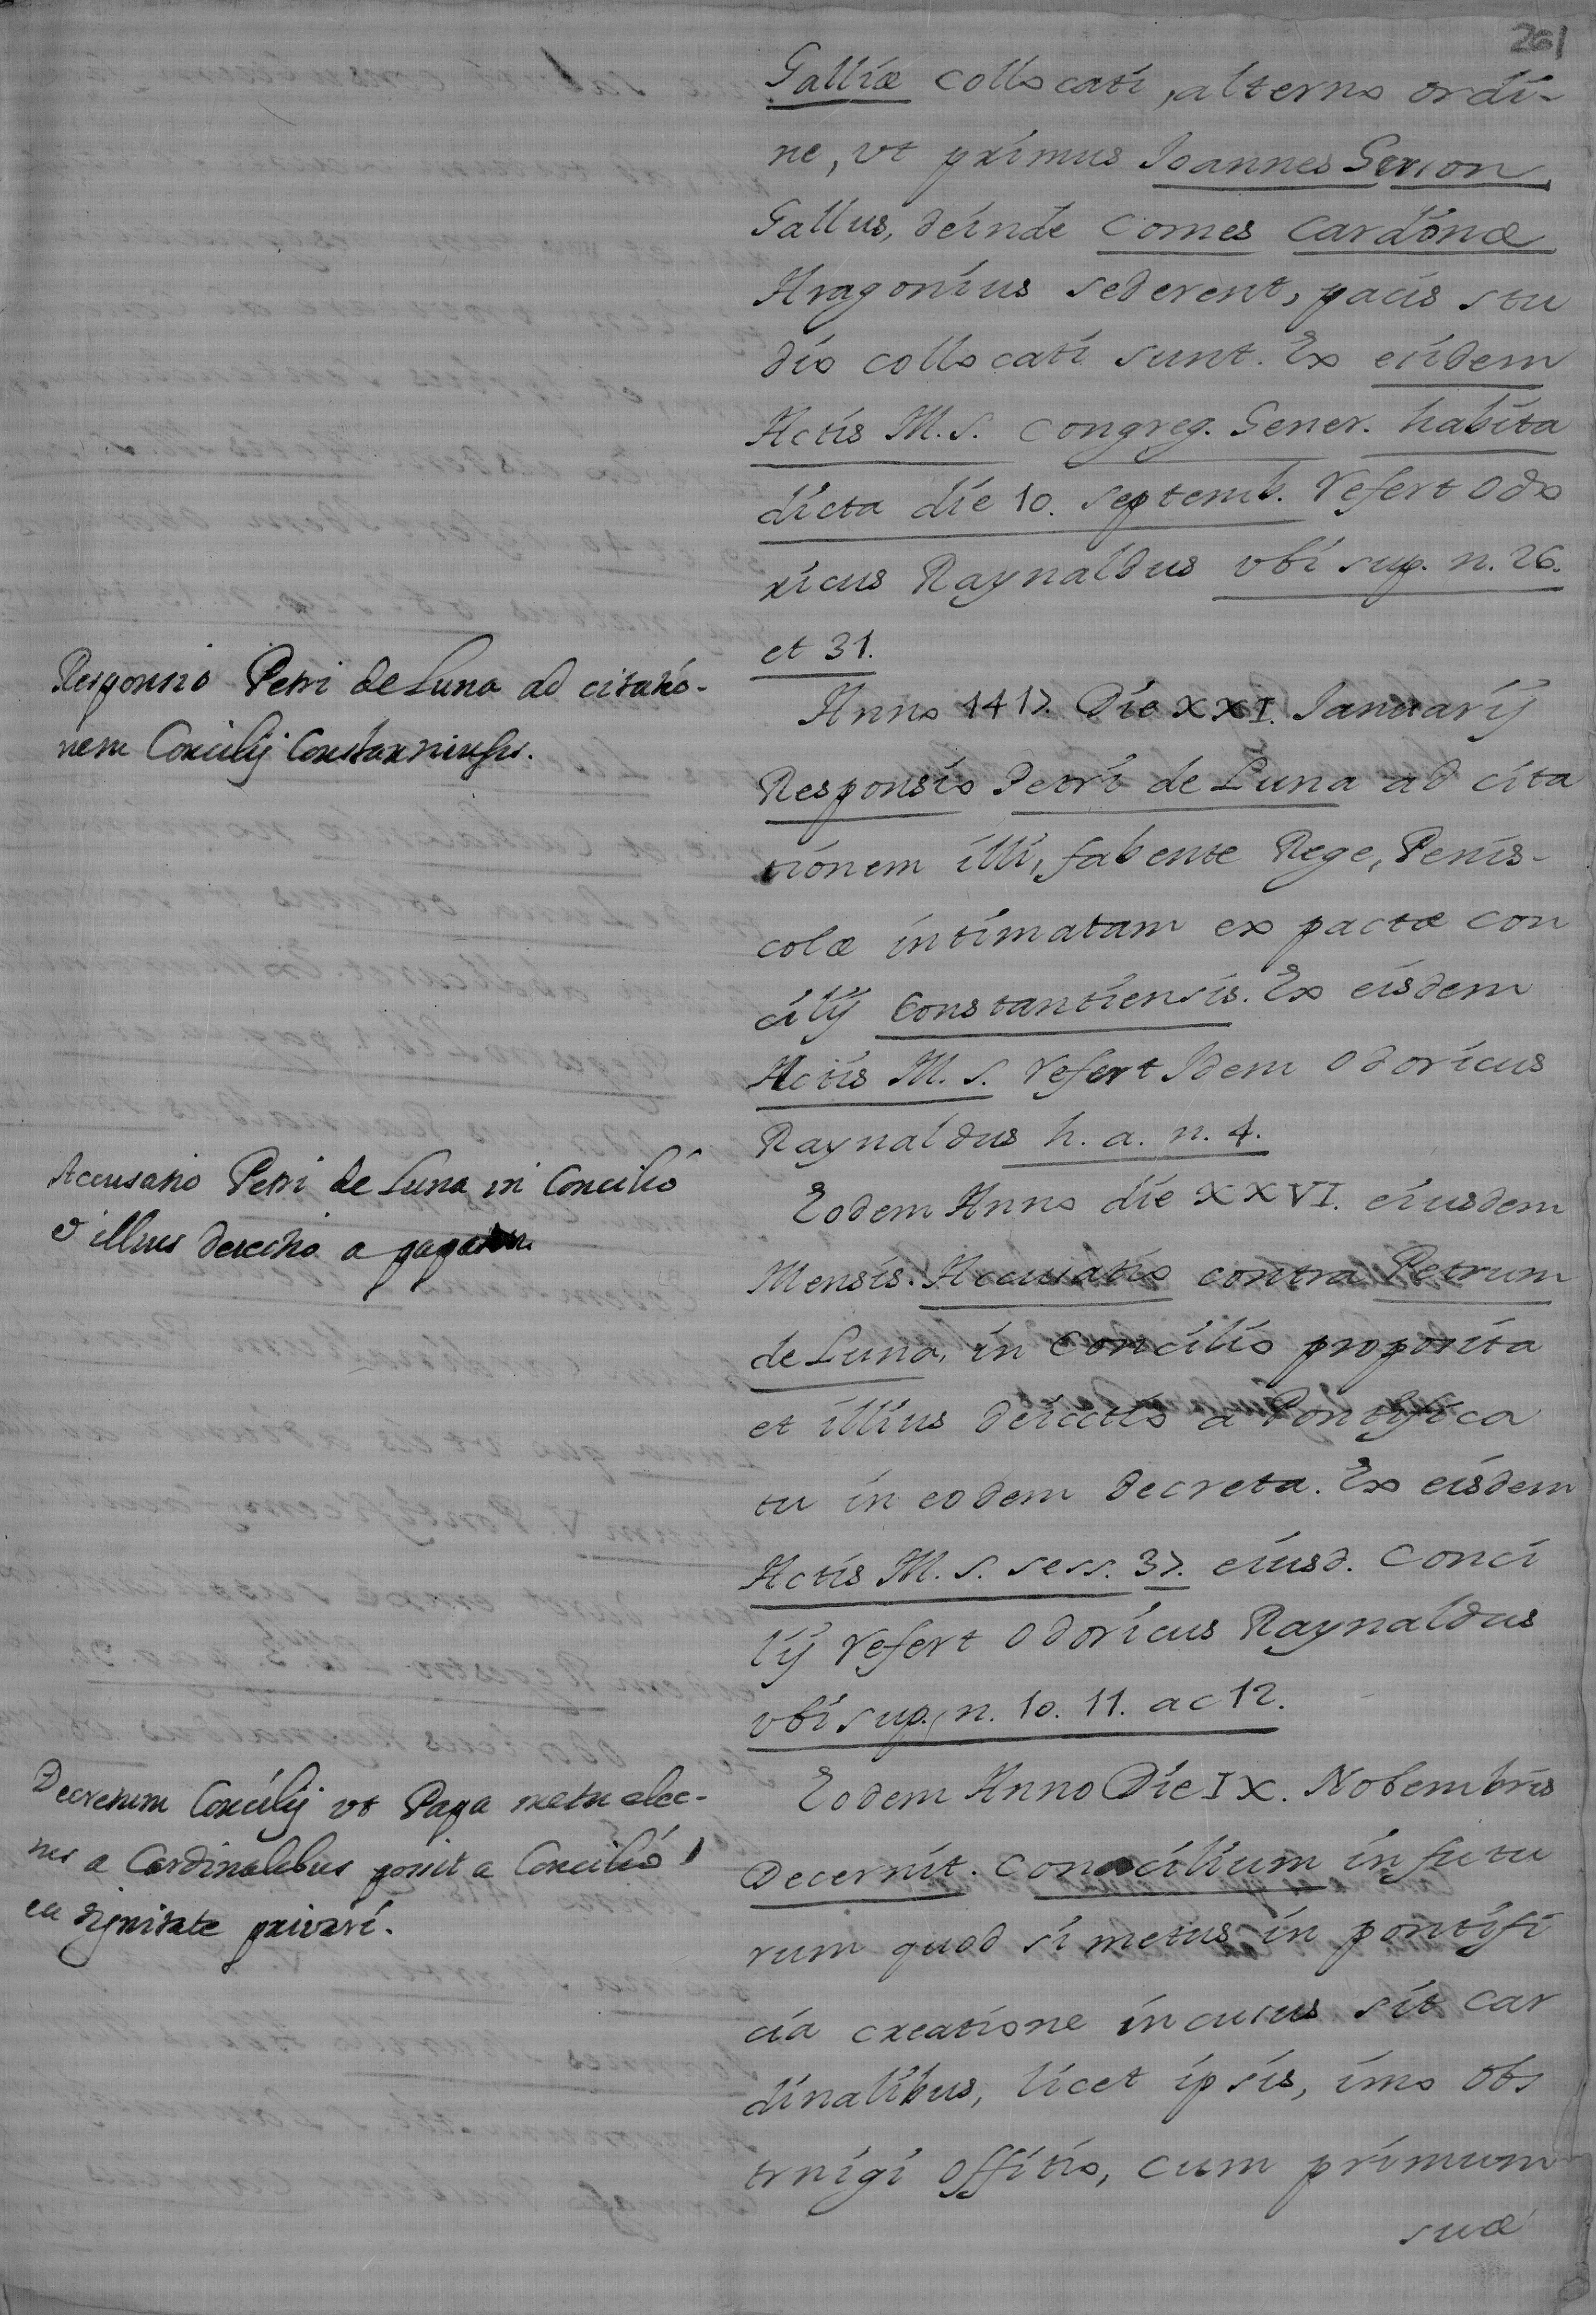 261
Galliæ collocati, alterno ordi-
ne, vt primus Ioannes Gerson
Gallus, deinde Comes Cardonæ
Aragonius sederent, pacis stu
dio collocati sunt. Ex eiisdem
Actis M. S. Congreg. Gener. habita
dicta die 10. septemb. refert Odo
ricus Raynaldus vbi sup. n. 26.
et 31.
Responsio Petri de Luna ad citatio-
nem Concilij Constanniensis.
Anno 1417. Die XXI. Ianuarij
Responsio Petri de Luna ad cita
tionem illi, fabente Rege, Penis-
colæ intimatam ex pactæ con
cilij Constantiensis. Ex eisdem
Actis M. S. refert Idem Odoricus
Raynaldus h. a. n. 4.
Accusatio Petri de Luna in Concilio
& illius deiectio a papatu.
Eodem Anno die XXVI. eiusdem
Mensis. Accusatio contra Petrum
de Luna, in Concilio proposita
et illius deiectio a Pontifica
tu in eodem decreta. Ex eisdem
Actis M. S. sess. 37. eiusd. Conci
lij refert Odoricus Raynaldus
vbi sup. n. 10. 11. ac 12.
Decretum Concilij vt Papa metu elec-
tus a Cardinalibus possit a Concilio
ea dignitate privari.
Eodem Anno Die IX. Nobembris
Decernit. Concilium in futu
rum quod si metus in pontifi
cia creatione incusus sit Car
dinalibus, licet ipsis, imo obs
trnigi offitio, cum primum
suæ